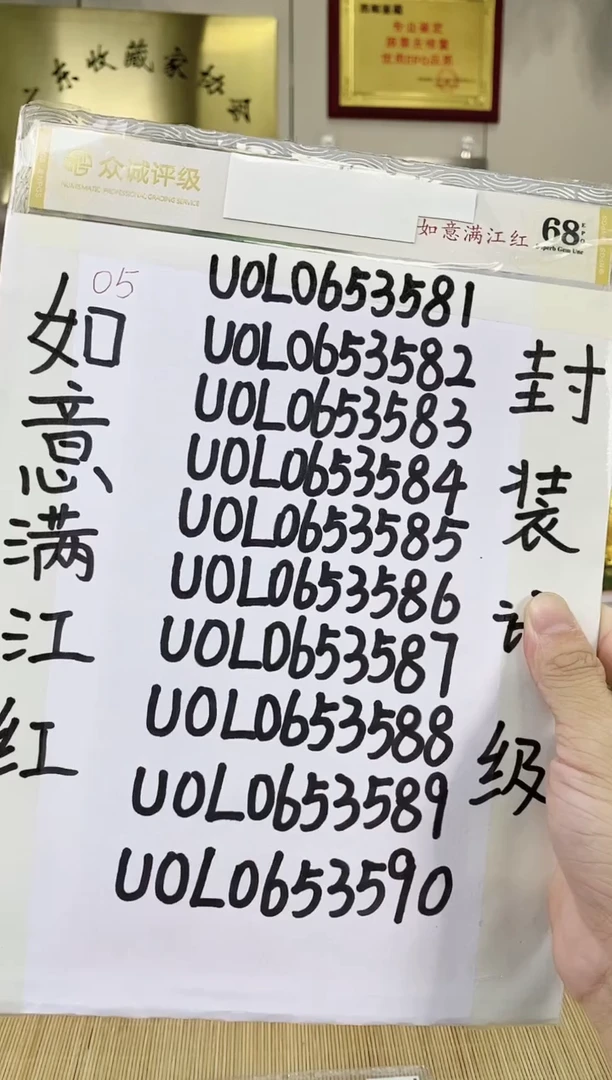 收藏家
专业鉴定
众诚评级
如意满江红
68
EPQ
Superb Gem Unc
05
如意满江红
UOL0653581
UOL0653582
UOL0653583
UOL0653584
UOL0653585
UOL0653586
UOL0653587
UOL0653588
UOL0653589
UOL0653590
封装
级